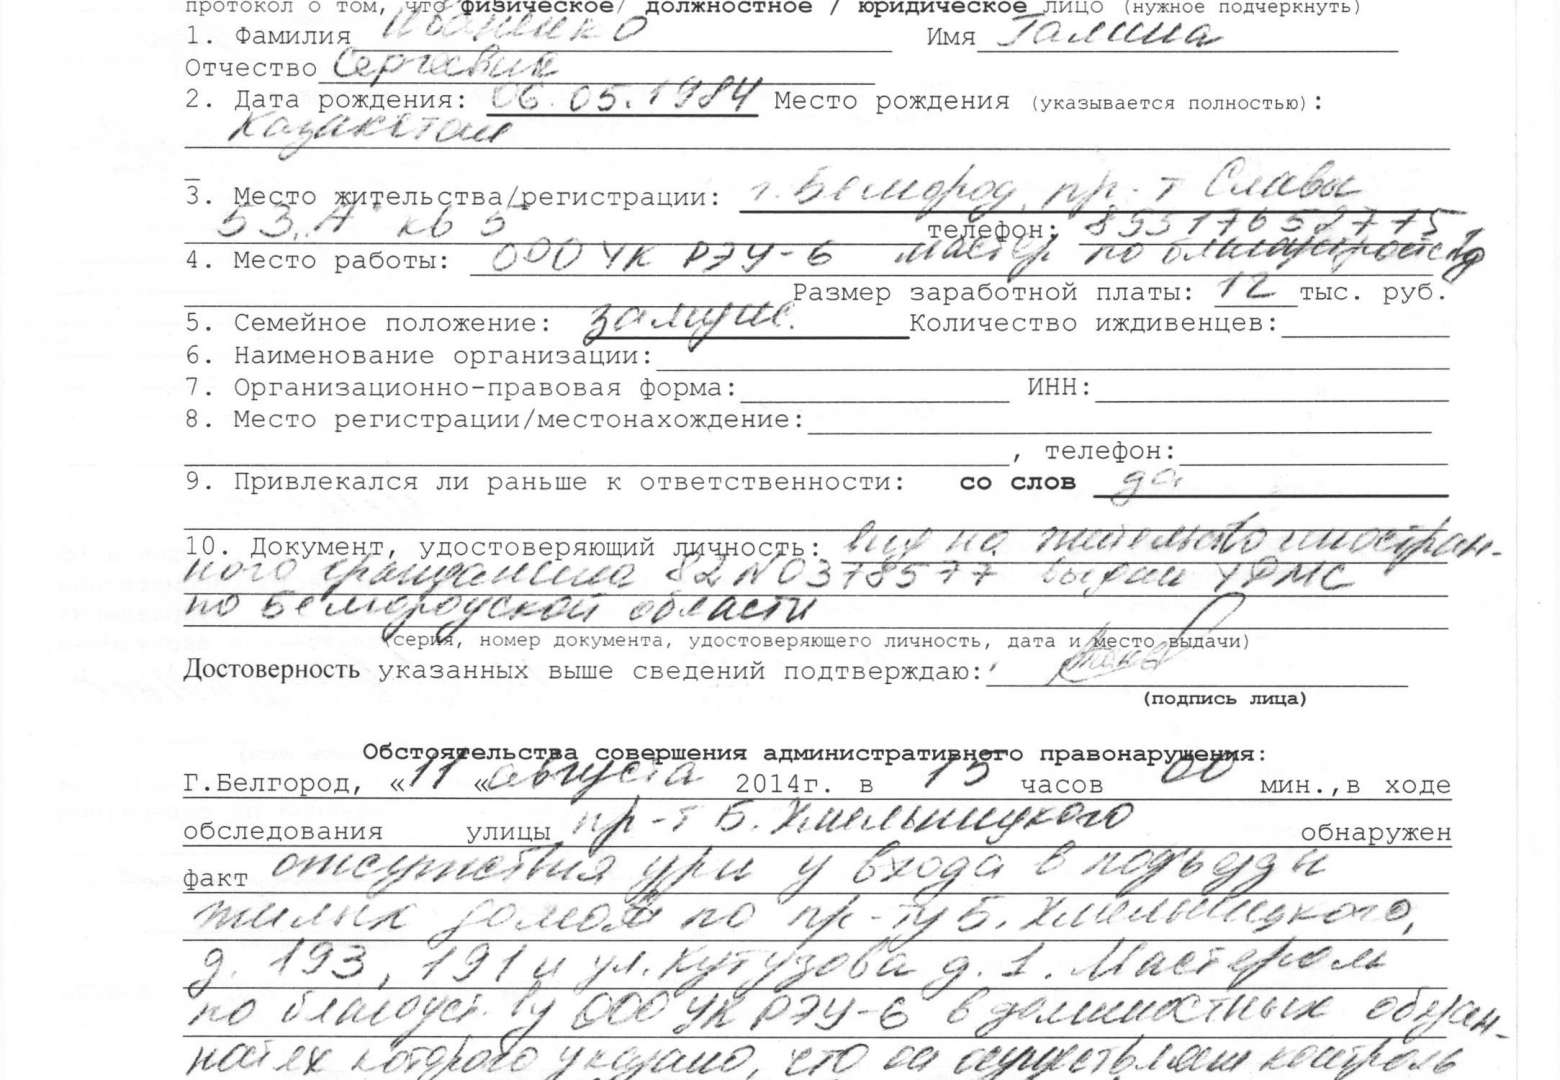 протокол о том, что физическое/ должностное / юридическое лицо (нужное подчеркнуть)
1. Фамилия Иваненко Имя Галина
Отчество Сергеевна
2. Дата рождения: 06.05.1984 Место рождения (указывается полностью):
Казакстан
3. Место жительства/регистрации: г. Белгород, пр-т Славы
53 А кв 5 телефон:
4. Место работы: ООО УК РЭУ-6 мастер по благоустройству
Размер заработной платы: 12 тыс. руб.
5. Семейное положение: замужем. Количество иждивенцев:
6. Наименование организации:
7. Организационно-правовая форма: ИНН:
8. Место регистрации/местонахождение:
, телефон:
9. Привлекался ли раньше к ответственности: со слов да
10. Документ, удостоверяющий личность: вид на жительство иностран-
ного гражданина 82 N0378577 выдан УФМС
по Белгородской области
(серия, номер документа, удостоверяющего личность, дата и место выдачи)
Достоверность указанных выше сведений подтверждаю:
(подпись лица)
Обстоятельства совершения административного правонарушения:
Г.Белгород, «11 « августа 2014г. в 15 часов 00 мин.,в ходе
обследования улицы пр-т Б. Хмельницкого обнаружен
факт отсутствия урн у входа в подъезды
жилых домов по пр-ту Б. Хмельницкого,
д. 193, 191 и ул. Кутузова д. 1. Мастером
по благоуст-ву ООО УК РЭУ-6 в должностных обязан-
ностях которого указано, что он осуществляет контроль